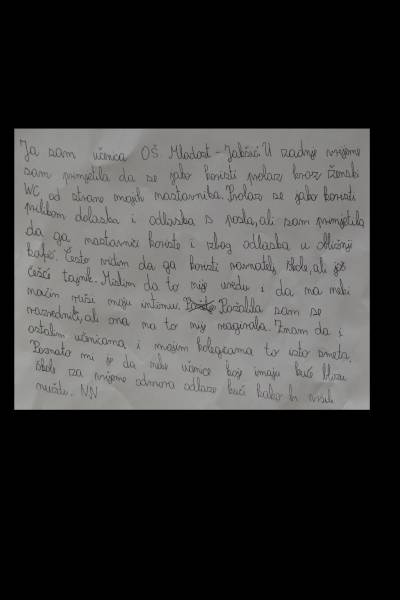 Ja sam učenica OŠ Mladost - Jakšić. U zadnje vrijeme
sam primjetila da se jako koristi prolaz kroz ženski
WC od strane mojih nastavnika. Prolaz se jako koristi
prilikom dolaska i odlaska s posla, ali sam primjetila
da ga nastavnici koriste i zbog odlaska u obližnji
kafić. Često vidim da ga koristi ravnatelj škole, ali još
češći tajnik. Mislim da to nije uredu i da na neki
način ruši moju intimu. Požalila sam se
razrednici, ali ona na to nije reagirala. Znam da i
ostalim učenicama i mojim kolegicama to isto smeta.
Poznato mi je da neke učenice koje imaju kuće blizu
škole za vrijeme odmora odlaze kući kako bi
nuždu. NN